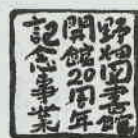 野畑図書館
開館20周年
記念事業